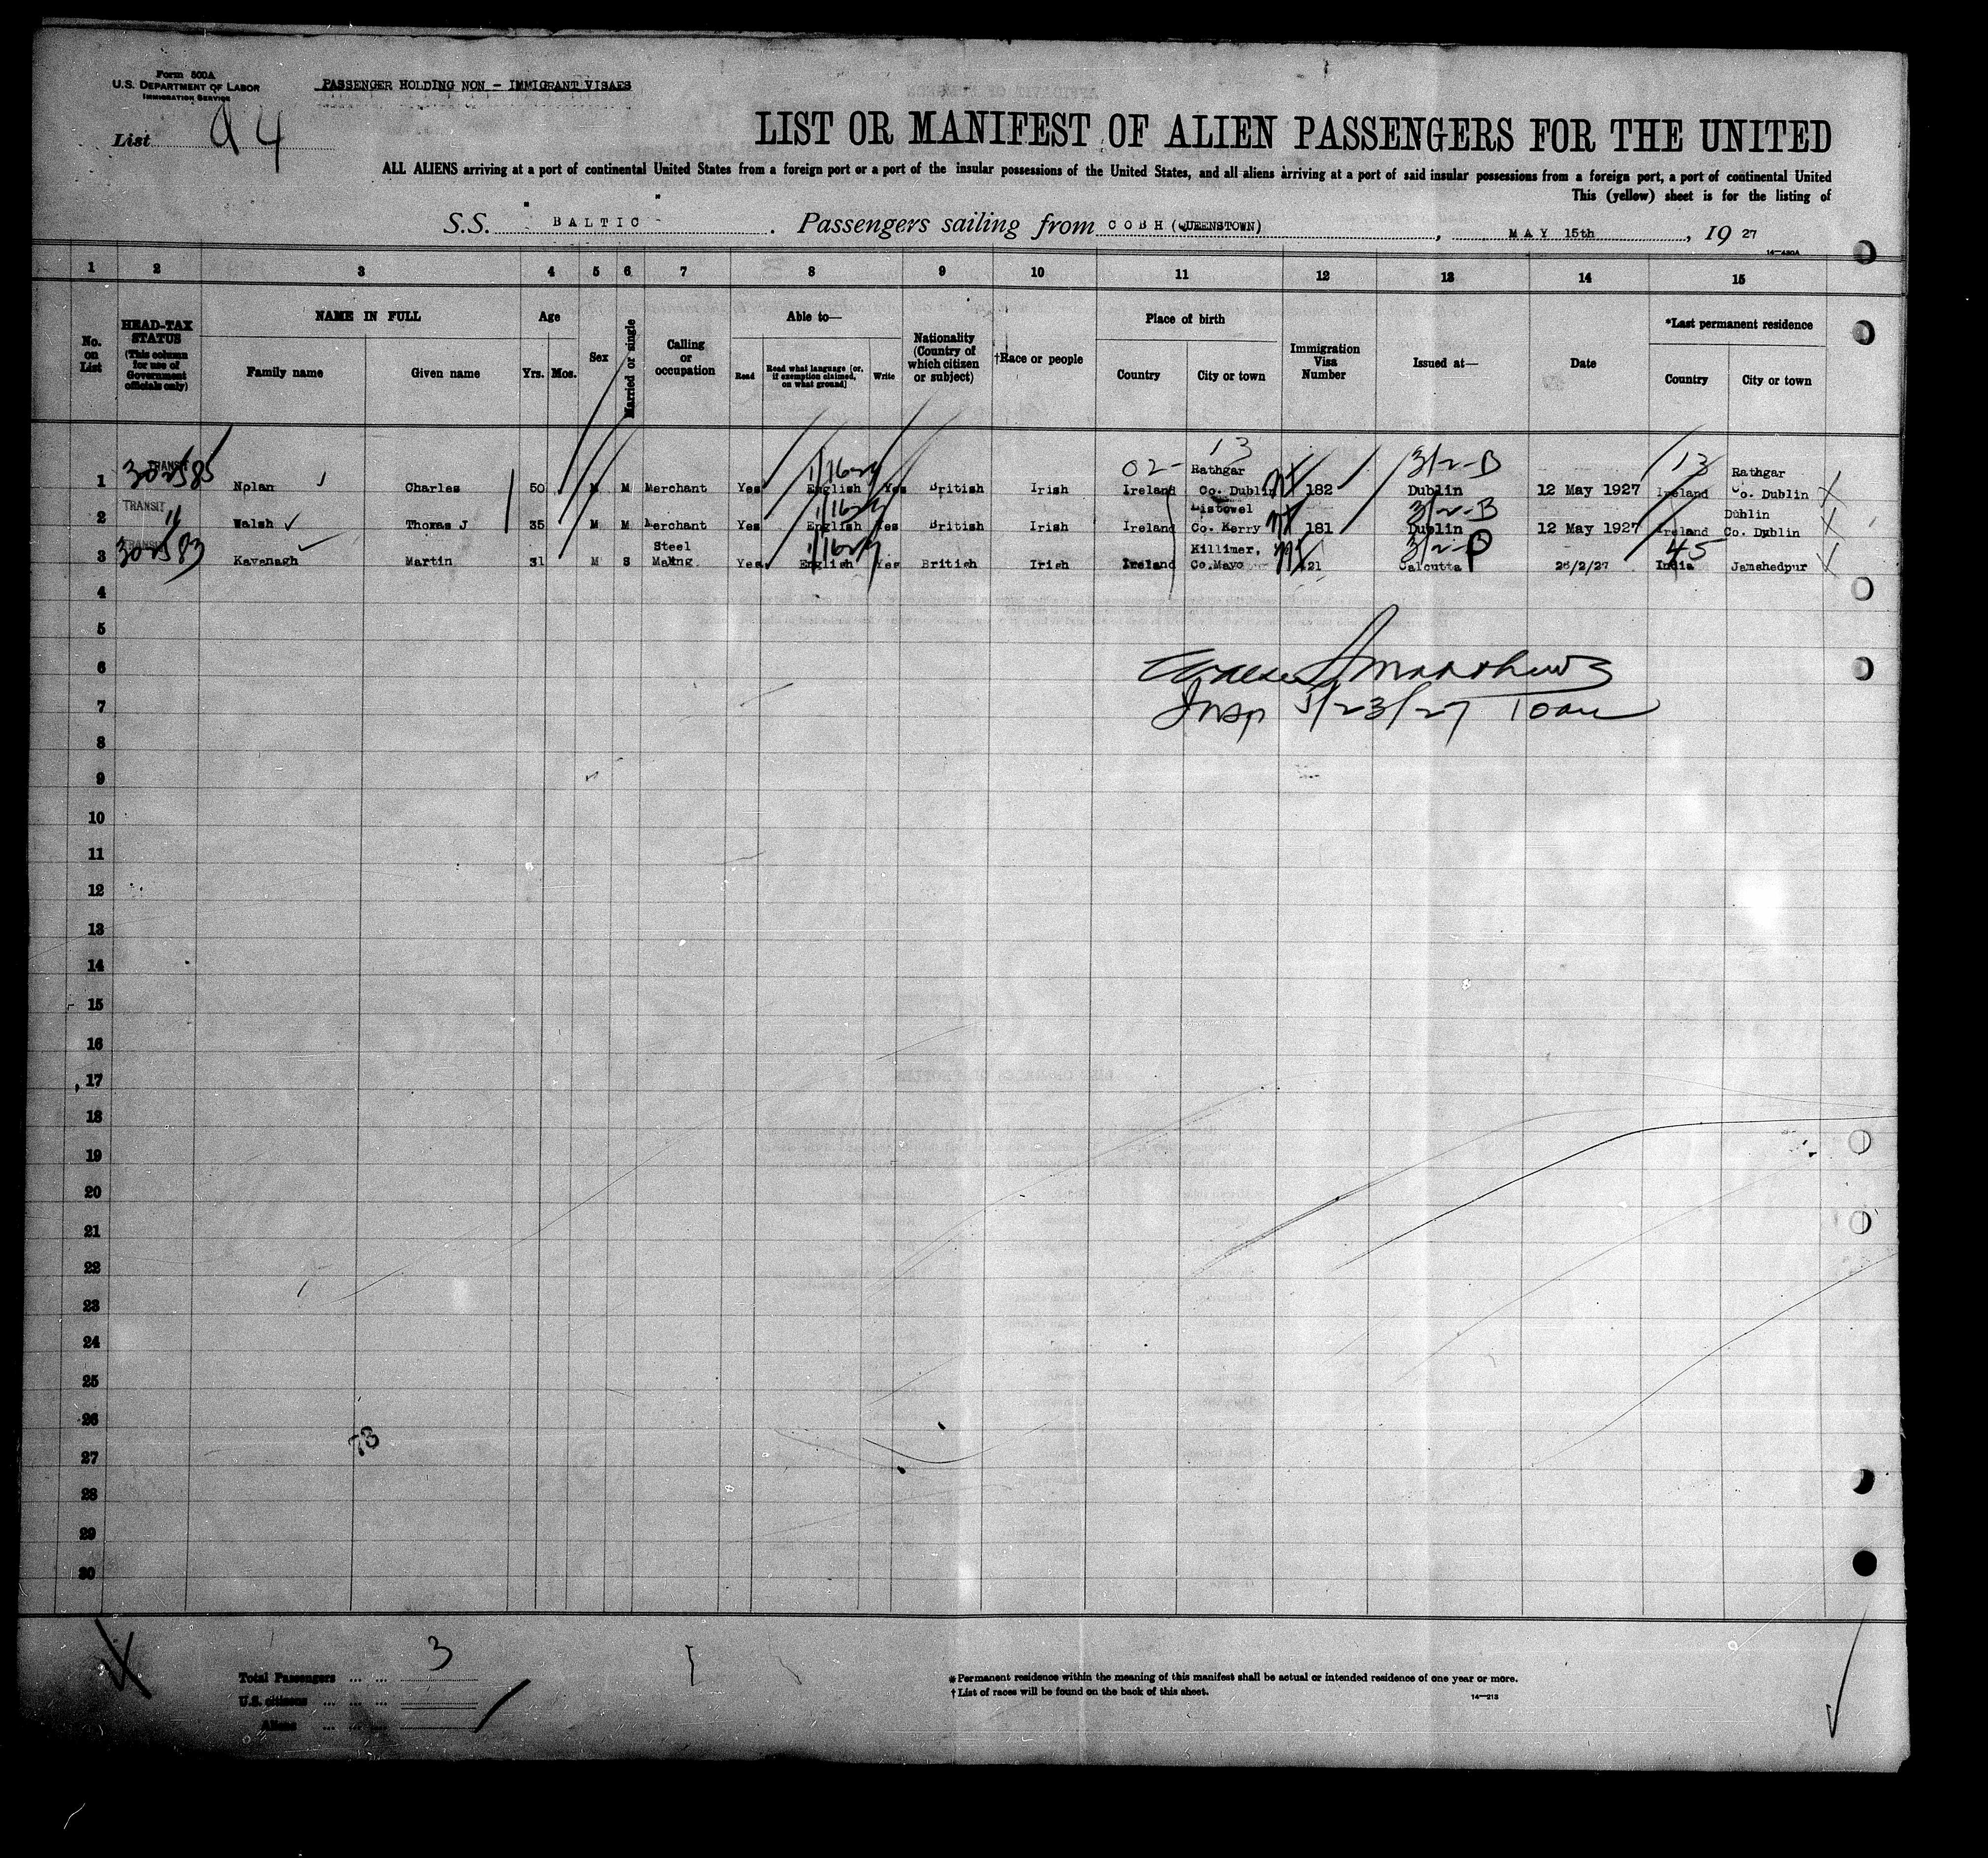 Form 500A
U.S. DEPARTMENT OF LABOR
IMMIGRATION SERVICE
PASSENGER HOLDING NON - IMMIGRANT VISAES
List 94
LIST OR MANIFEST OF ALIEN PASSENGERS FOR THE UNITED
ALL ALIENS arriving at a port of continental United States from a foreign port or a port of the insular possessions of the United States, and all aliens arriving at a port of said insular possessions from a foreign port, a port of continental United
This (yellow) sheet is for the listing of
S.S. " BALTIC " . Passengers sailing from COBH (QUEENSTOWN) , MAY 15th , 19 27
14—430A
1 2 3 4 5 6 7 8 9 10 11 12 13 14 15
No. on List
HEAD-TAX STATUS (This column for use of Government officials only)
NAME IN FULL
Family name
Given name
Age
Yrs. Mos.
Sex
Married or single
Calling or occupation
Able to—
Read
Read what language [or, if exemption claimed, on what ground]
Write
Nationality (Country of which citizen or subject)
†Race or people
Place of birth
Country
City or town
Immigration Visa Number
Issued at—
Date
*Last permanent residence
Country
City or town
13
302585 TRANSIT 1/1627 02- Rathgar 3/2-B 13 Rathgar
1 Nolan Charles 50 M M Merchant Yes English Yes British Irish Ireland Co. Dublin 182 Dublin 12 May 1927 Ireland Co. Dublin X
TRANSIT 1/1627 Listowel 3/2-B Dublin
2 " Walsh ✓ Thomas J 35 M M Merchant Yes English Yes British Irish Ireland Co. Kerry 181 Dublin 12 May 1927 Ireland Co. Dublin X
TRANSIT 302583 Steel 1/1627 Killimer, 3/2-B 45
3 Kavanagh ✓ Martin 31 M S Making Yes English Yes British Irish Ireland Co.Mayo 121 Calcutta 26/2/27 India Jamshedpur X
4
5
6 Matthews
7 Insp 5/23/27 10am
8
9
10
11
12
13
14
15
16
17
18
19
20
21
22
23
24
25
26
73
27
28
29
30
Total Passengers ... ... 3
U.S. citizens ... ... ...
Aliens ... ... ...
*Permanent residence within the meaning of this manifest shall be actual or intended residence of one year or more.
†List of races will be found on the back of this sheet.
14—213